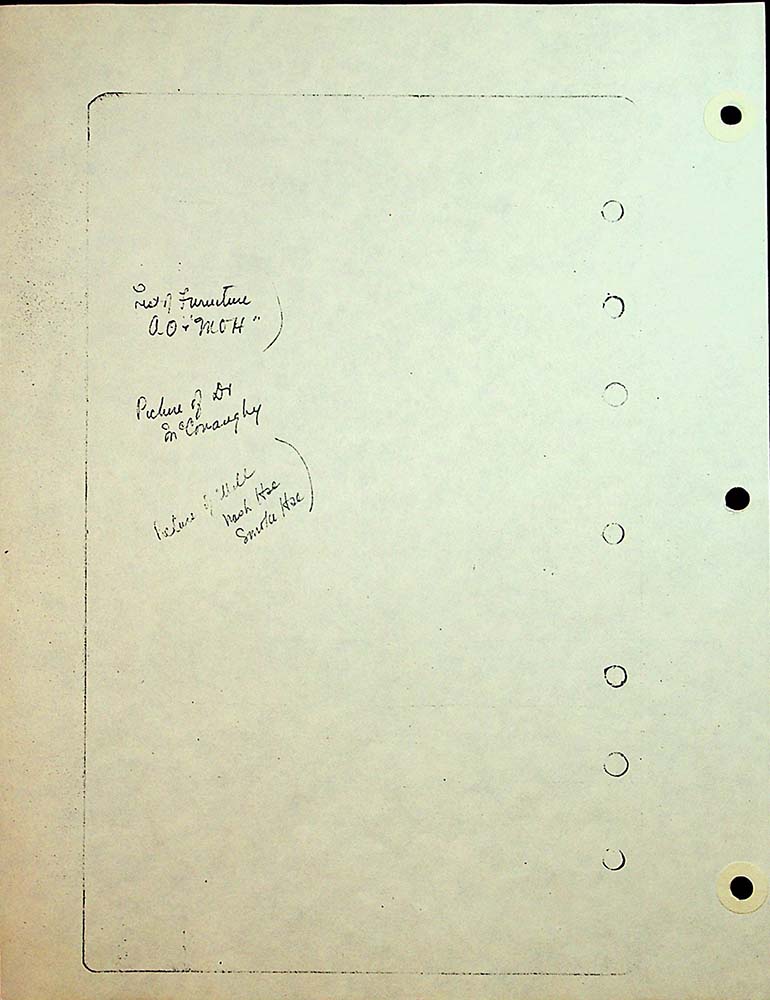 List of Furniture
AO + "MOH"
Picture of Dr
McConaughy
Picture of Well
Wash Hse
Smoke Hse